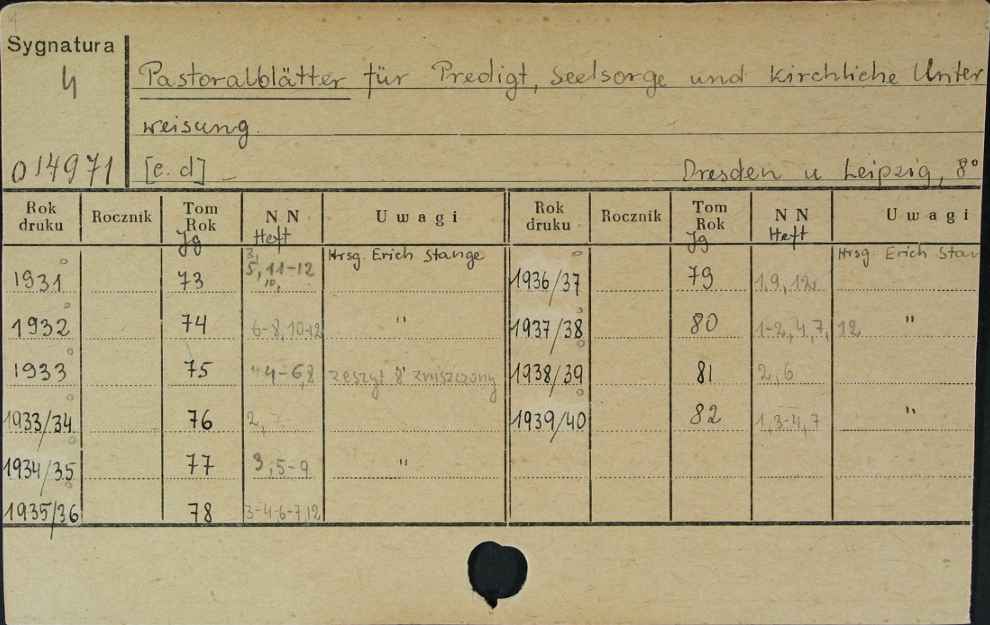 Sygnatura
4
Pastoralblätter für Predigt, Seelsorge und kirchliche Unter
weisung
014971 [e. d] Dresden u Leipzig, 8°
Rok druku Rocznik Tom Rok Jg NN Heft Uwagi Rok druku Rocznik Tom Rok Jg NN Heft Uwagi
Hrsg. Erich Stange Hrsg Erich Stan
1931 73 3, 5, 10, 11-12 1936/37 79 1,9,12
1932 74 6-8,10-12 " 1937/38 80 1-2,4,7,12 "
1933 75 4-6,8 zeszyt 8 zniszczony 1938/39 81 2,6
1933/34 76 2, 1939/40 82 1,3-4,7 "
1934/35 77 3,5-9 "
1935/36 78 3-4-6-7,12